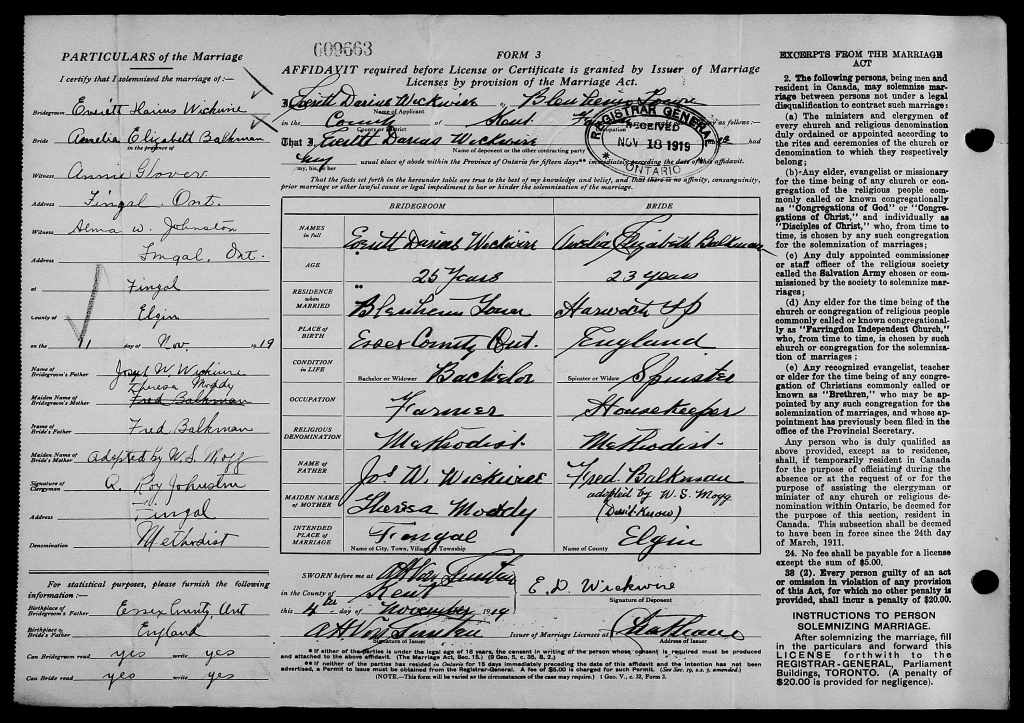 PARTICULARS of the Marriage
I certify that I solemnized the marriage of:—
Bridegroom Everett Darius Wickwire
Bride Amelia Elizabeth Balkman
in the presence of
Witness Annie Glover
Address Fingal. Ont.
Witness Alma W. Johnston
Address Fingal, Ont.
at Fingal
County of Elgin
on the 11 day of Nov. 1919
Name of Bridegroom's Father Joseph W. Wickwire
Theresa Moddy
Maiden Name of Bridegroom's Mother Fred Balkman
Name of Bride's Father Fred Balkman
Maiden Name of Bride's Mother adopted by W. S. Mogg
Signature of Clergyman Roy Johnston
Address Fingal
Denomination Methodist
For statistical purposes, please furnish the following
information:—
Birthplace of Bridegroom's Father Essex County, Ont
Birthplace of Bride's Father England
Can Bridegroom read yes write yes
Can Bride read yes write yes
009663
FORM 3
AFFIDAVIT required before License or Certificate is granted by Issuer of Marriage
Licenses by provision of the Marriage Act.
I, Everitt Darias Wickwire of Blenheim Town
Name of Applicant
in the County of Kent as follows:—
County or District
Occupation
That I Everitt Darias Wickwire had
Name of deponent or the other contracting party
my usual place of abode within the Province of Ontario for fifteen days** immediately preceding the date of this affidavit.
my, his, or her
That the facts set forth in the hereunder table are true to the best of my knowledge and belief, and that there is no affinity, consanguinity,
prior marriage or other lawful cause or legal impediment to bar or hinder the solemnization of the marriage.
REGISTRAR GENERAL
RECEIVED
NOV 18 1919
ONTARIO
BRIDEGROOM BRIDE
NAMES in full Everitt Darias Wickwire Amelia Elizabeth Balkman
AGE 25 Years 23 years
RESIDENCE when MARRIED Blenheim Town Harwich Tp
PLACE OF BIRTH Essex County Ont. England
CONDITION IN LIFE Bachelor or Widower Bachelor Spinster or Widow Spinster
OCCUPATION Farmer Housekeeper
RELIGIOUS DENOMINATION Methodist Methodist
NAME OF FATHER Jos W. Wickwire Fred Balkman
adopted by W. S. Mogg
MAIDEN NAME OF MOTHER Theresa Moddy (Don't Know)
INTENDED PLACE OF MARRIAGE Fingal Elgin
Name of City, Town, Village or Township Name of County
SWORN before me at
in the County of Kent E. D. Wickwire
Signature of Deponent
this 4th day of November 1919
Issuer of Marriage Licenses at
Signature of Issuer Address of Issuer
* If either of the parties is under the legal age of 18 years, the consent in writing of the person whose consent is required must be produced
and attached to the above affidavit. (The Marriage Act, Sec. 15.) (9 Geo. 5, c. 35, S. 2.)
** If neither of the parties has resided in Ontario for 15 days immediately preceding the date of this affidavit and the intention has not been
advertised, a Permit to issue must be obtained from the Registrar-General. A fee of $5.00 is charged for such Permit. (See Sec. 19, s.s. 3, amended.)
(NOTE.—This form will be varied as the circumstances of the case may require.) 1 Geo. V., c. 32, Form 3.
EXCERPTS FROM THE MARRIAGE
ACT
2. The following persons, being men and
resident in Canada, may solemnize mar-
riage between persons not under a legal
disqualification to contract such marriage:
(a) The ministers and clergymen of
every church and religious denomination
duly ordained or appointed according to
the rites and ceremonies of the church or
denomination to which they respectively
belong;
(b) Any elder, evangelist or missionary
for the time being of any church or con-
gregation of the religious people com-
monly called or known congregationally
as "Congregations of God" or "Congre-
gations of Christ," and individually as
"Disciples of Christ," who, from time to
time, is chosen by any such congregation
for the solemnization of marriages;
(c) Any duly appointed commissioner
or staff officer of the religious society
called the Salvation Army chosen or com-
missioned by the society to solemnize mar-
riages;
(d) Any elder for the time being of the
church or congregation of religious people
commonly called or known congregational-
ly as "Farringdon Independent Church,"
who, from time to time, is chosen by such
church or congregation for the solemniza-
tion of marriages;
(e) Any recognized evangelist, teacher
or elder for the time being of any congre-
gation of Christians commonly called or
known as "Brethren," who may be ap-
pointed by any such congregation for the
solemnization of marriages, and whose ap-
pointment has previously been filed in the
office of the Provincial Secretary.
Any person who is duly qualified as
above provided, except as to residence,
shall, if temporarily resident in Canada
for the purpose of officiating during the
absence or at the request of or for the
purpose of assisting the clergyman or
minister of any church or religious de-
nomination within Ontario, be deemed for
the purpose of this section, resident in
Canada. This subsection shall be deemed
to have been in force since the 24th day
of March, 1911.
24. No fee shall be payable for a license
except the sum of $5.00.
38 (2). Every person guilty of an act
or omission in violation of any provision
of this Act, for which no other penalty is
provided, shall incur a penalty of $20.00.
INSTRUCTIONS TO PERSON
SOLEMNIZING MARRIAGE.
After solemnizing the marriage, fill
in the particulars and forward this
LICENSE forthwith to the
REGISTRAR-GENERAL, Parliament
Buildings, TORONTO. (A penalty of
$20.00 is provided for negligence).